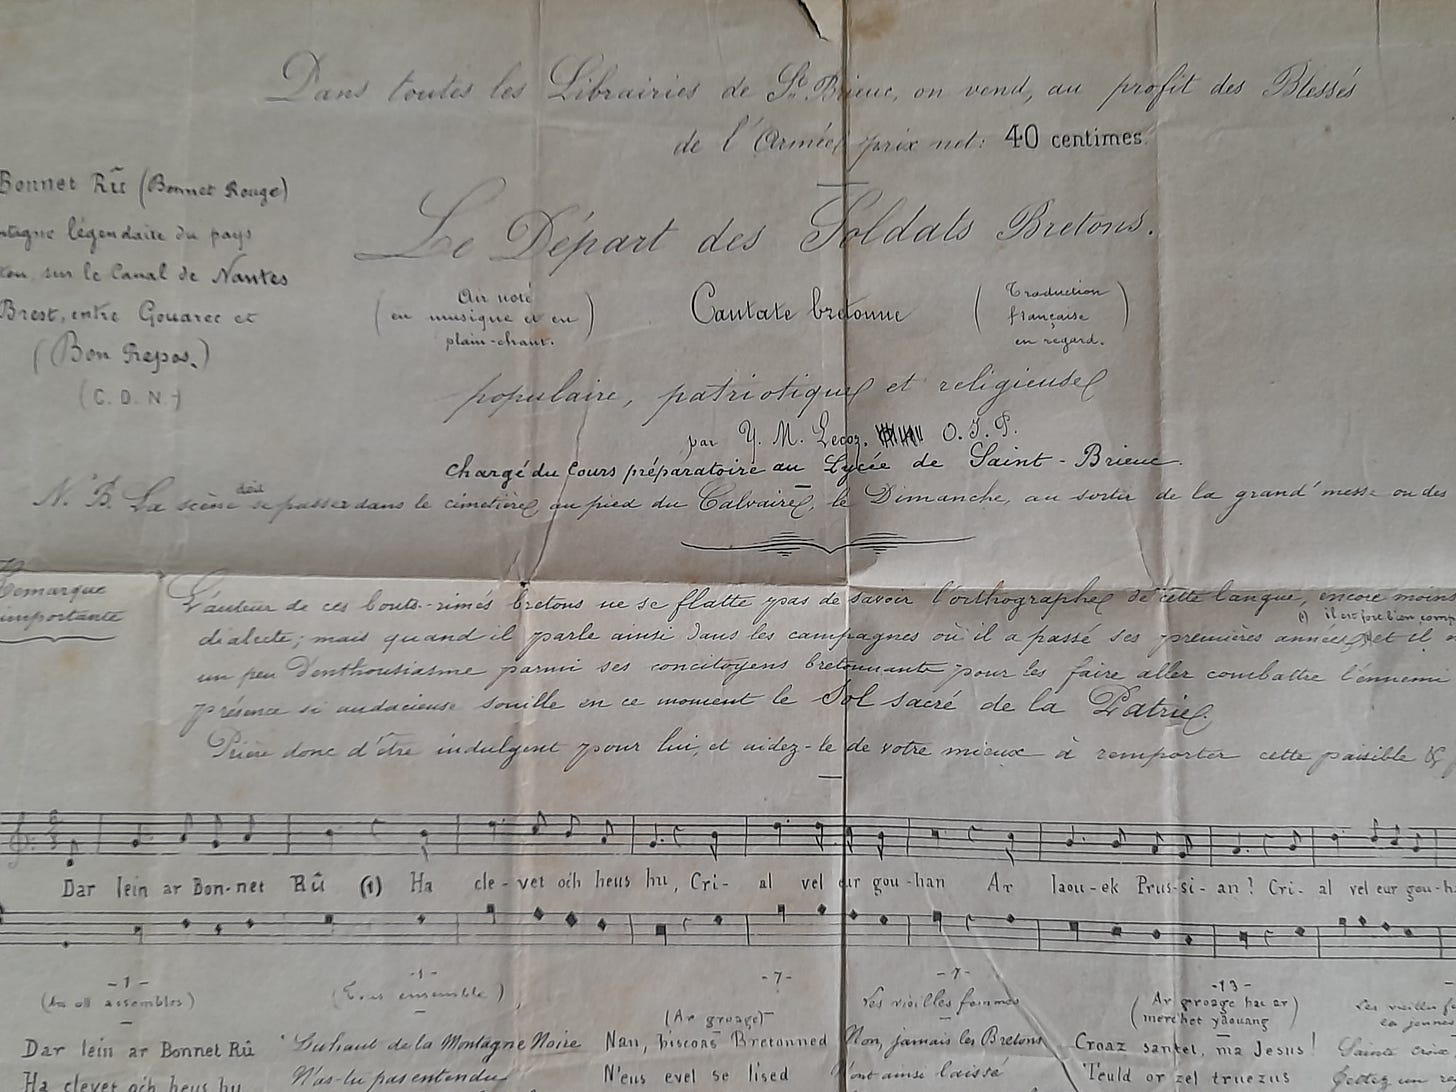 Dans toutes les Librairies de St. Brieuc, on vend, au profit des Blessés
de l'Armée prix net: 40 centimes
Bonnet Rû (Bonnet Rouge)
légendaire du pays
sur le Canal de Nantes
Brest, entre Gouarec et
(Bon Repos.)
(C. D. N.)
Le Départ des Soldats Bretons.
(Air noté
en musique et en
plain-chant.)
Cantate bretonne
(Traduction
française
en regard.)
populaire, patriotique et religieuse
par Y. M. Lecoz, O. I. P.
chargé du Cours préparatoire au Lycée de Saint-Brieuc.
N. B. La scène doit se passer dans le cimetière, au pied du Calvaire, le Dimanche, au sortir de la grand'messe ou des
Remarque
importante
L'auteur de ces bouts-rimés bretons ne se flatte pas de savoir l'orthographe de cette langue, encore moins
dialecte; mais quand il parle ainsi dans les campagnes où il a passé ses premières années, et il
(1) il est fort bien comp
un peu d'enthousiasme parmi ses concitoyens bretonnants pour les faire aller combattre l'ennemi
présence si audacieuse souille en ce moment le Sol sacré de la Patrie.
Prière donc d'être indulgent pour lui, et aidez-le de votre mieux à remporter cette paisible &
Dar lein ar Bon-net Rû (1) Ha cle-vet och heus hu, Cri-al vel eur gou-han Ar laou-ek Prus-si-an! Cri-al vel eur gou-h
-1-
(An oll assembles)
Dar lein ar Bonnet Rû
Ha clevet och heus hu
-1-
(Tous ensemble)
Du haut de la Montagne Noire
N'as-tu pas entendu
-7-
(Ar groage)
Nan, biscoas Bretonned
N'eus evel se lised
-7-
Les vieilles femmes
Non, jamais les Bretons
N'ont ainsi laissé
-13-
(Ar groage hac ar
merc'het yaouang)
Croaz santel, ma Jesus!
Teuld or zel truezus
Les vieilles
Sainte croix